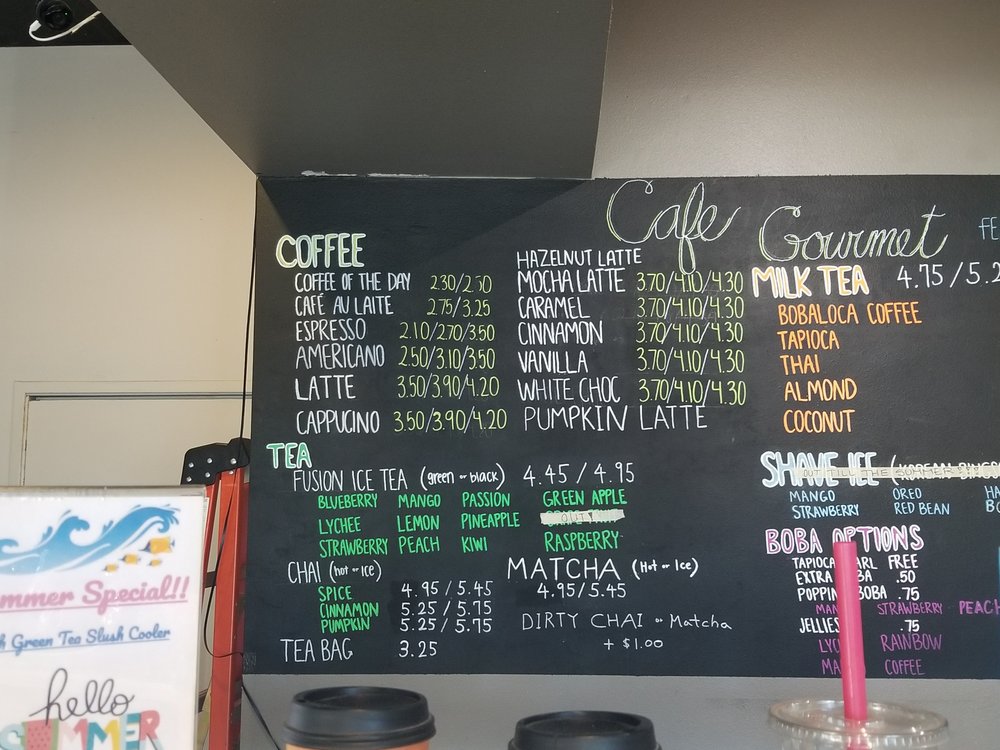 Cafe Gourmet
COFFEE
COFFEE OF THE DAY 2.30/2.50
CAFÉ AU LAITE 2.75/3.25
ESPRESSO 2.10/2.70/3.50
AMERICANO 2.50/3.10/3.50
LATTE 3.50/3.90/4.20
CAPPUCINO 3.50/3.90/4.20
HAZELNUT LATTE
MOCHA LATTE 3.70/4.10/4.30
CARAMEL 3.70/4.10/4.30
CINNAMON 3.70/4.10/4.30
VANILLA 3.70/4.10/4.30
WHITE CHOC 3.70/4.10/4.30
PUMPKIN LATTE
TEA
FUSION ICE TEA (green or black) 4.45 / 4.95
BLUEBERRY MANGO PASSION GREEN APPLE
LYCHEE LEMON PINEAPPLE OUT
STRAWBERRY PEACH KIWI RASPBERRY
CHAI (hot or ICE)
SPICE 4.95/5.45
CINNAMON 5.25/5.75
PUMPKIN 5.25/5.75
TEA BAG 3.25
MATCHA (Hot or Ice)
4.95/5.45
DIRTY CHAI or Matcha
+ $1.00
MILK TEA 4.75/5.2
BOBALOCA COFFEE
TAPIOCA
THAI
ALMOND
COCONUT
SHAVE ICE
OUT TILL THE SUMMER
MANGO OREO HA
STRAWBERRY RED BEAN BO
BOBA OPTIONS
TAPIOCA ARL FREE
EXTRA BA .50
POPPIN BOBA .75
MAN STRAWBERRY PEACH
JELLIES .75
LYC RAINBOW
MA COFFEE
FE
mmer Special!!
h Green Tea Slush Cooler
hello
SUMMER